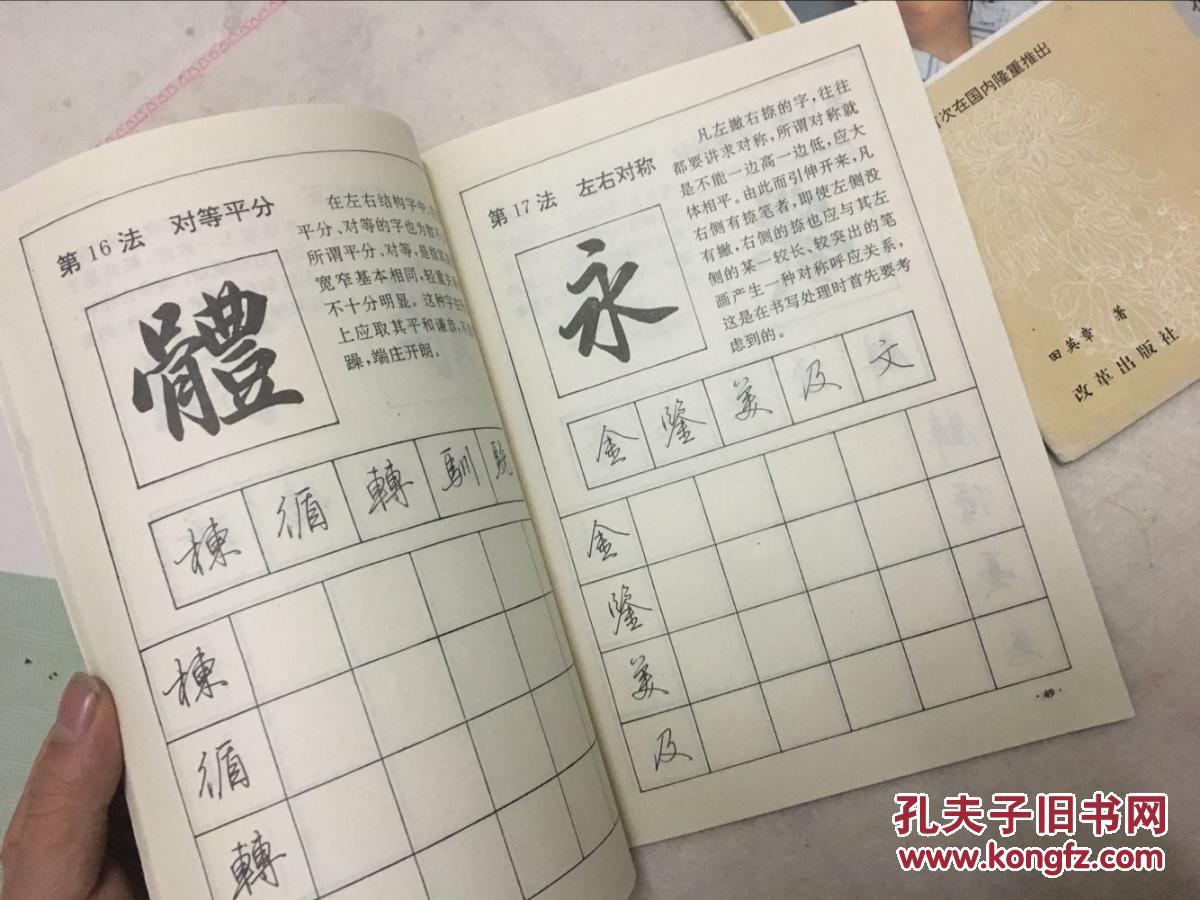 第16法 对等平分
在左右结构字中,
平分、对等的字也为数
所谓平分、对等,是指
宽窄基本相同,轻重
不十分明显。这种字在
上应取其平和谦恭,不
躁,端庄开朗。
體
棟 循 轉 馴
棟
循
轉
第17法 左右对称
凡左撇右捺的字,往往
都要讲求对称,所谓对称就
是不能一边高一边低,应大
体相平。由此而引伸开来,凡
右侧有捺笔者,即使左侧没
有撇,右侧的捺也应与其左
侧的某一较长、较突出的笔
画产生一种对称呼应关系,
这是在书写处理时首先要考
虑到的。
永
金 鑒 美 及 文
金
鑒
美
及
·49·
次在国内隆重推出
田英章 著
改革出版社
孔夫子旧书网
www.kongfz.com